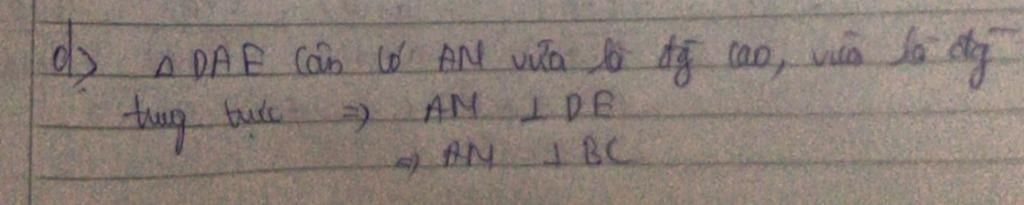 d> △ DAE cân có AM vừa là đg̃ cao, vừa là đg̃
trung trực => AM ⊥ DE
=> AM ⊥ BC